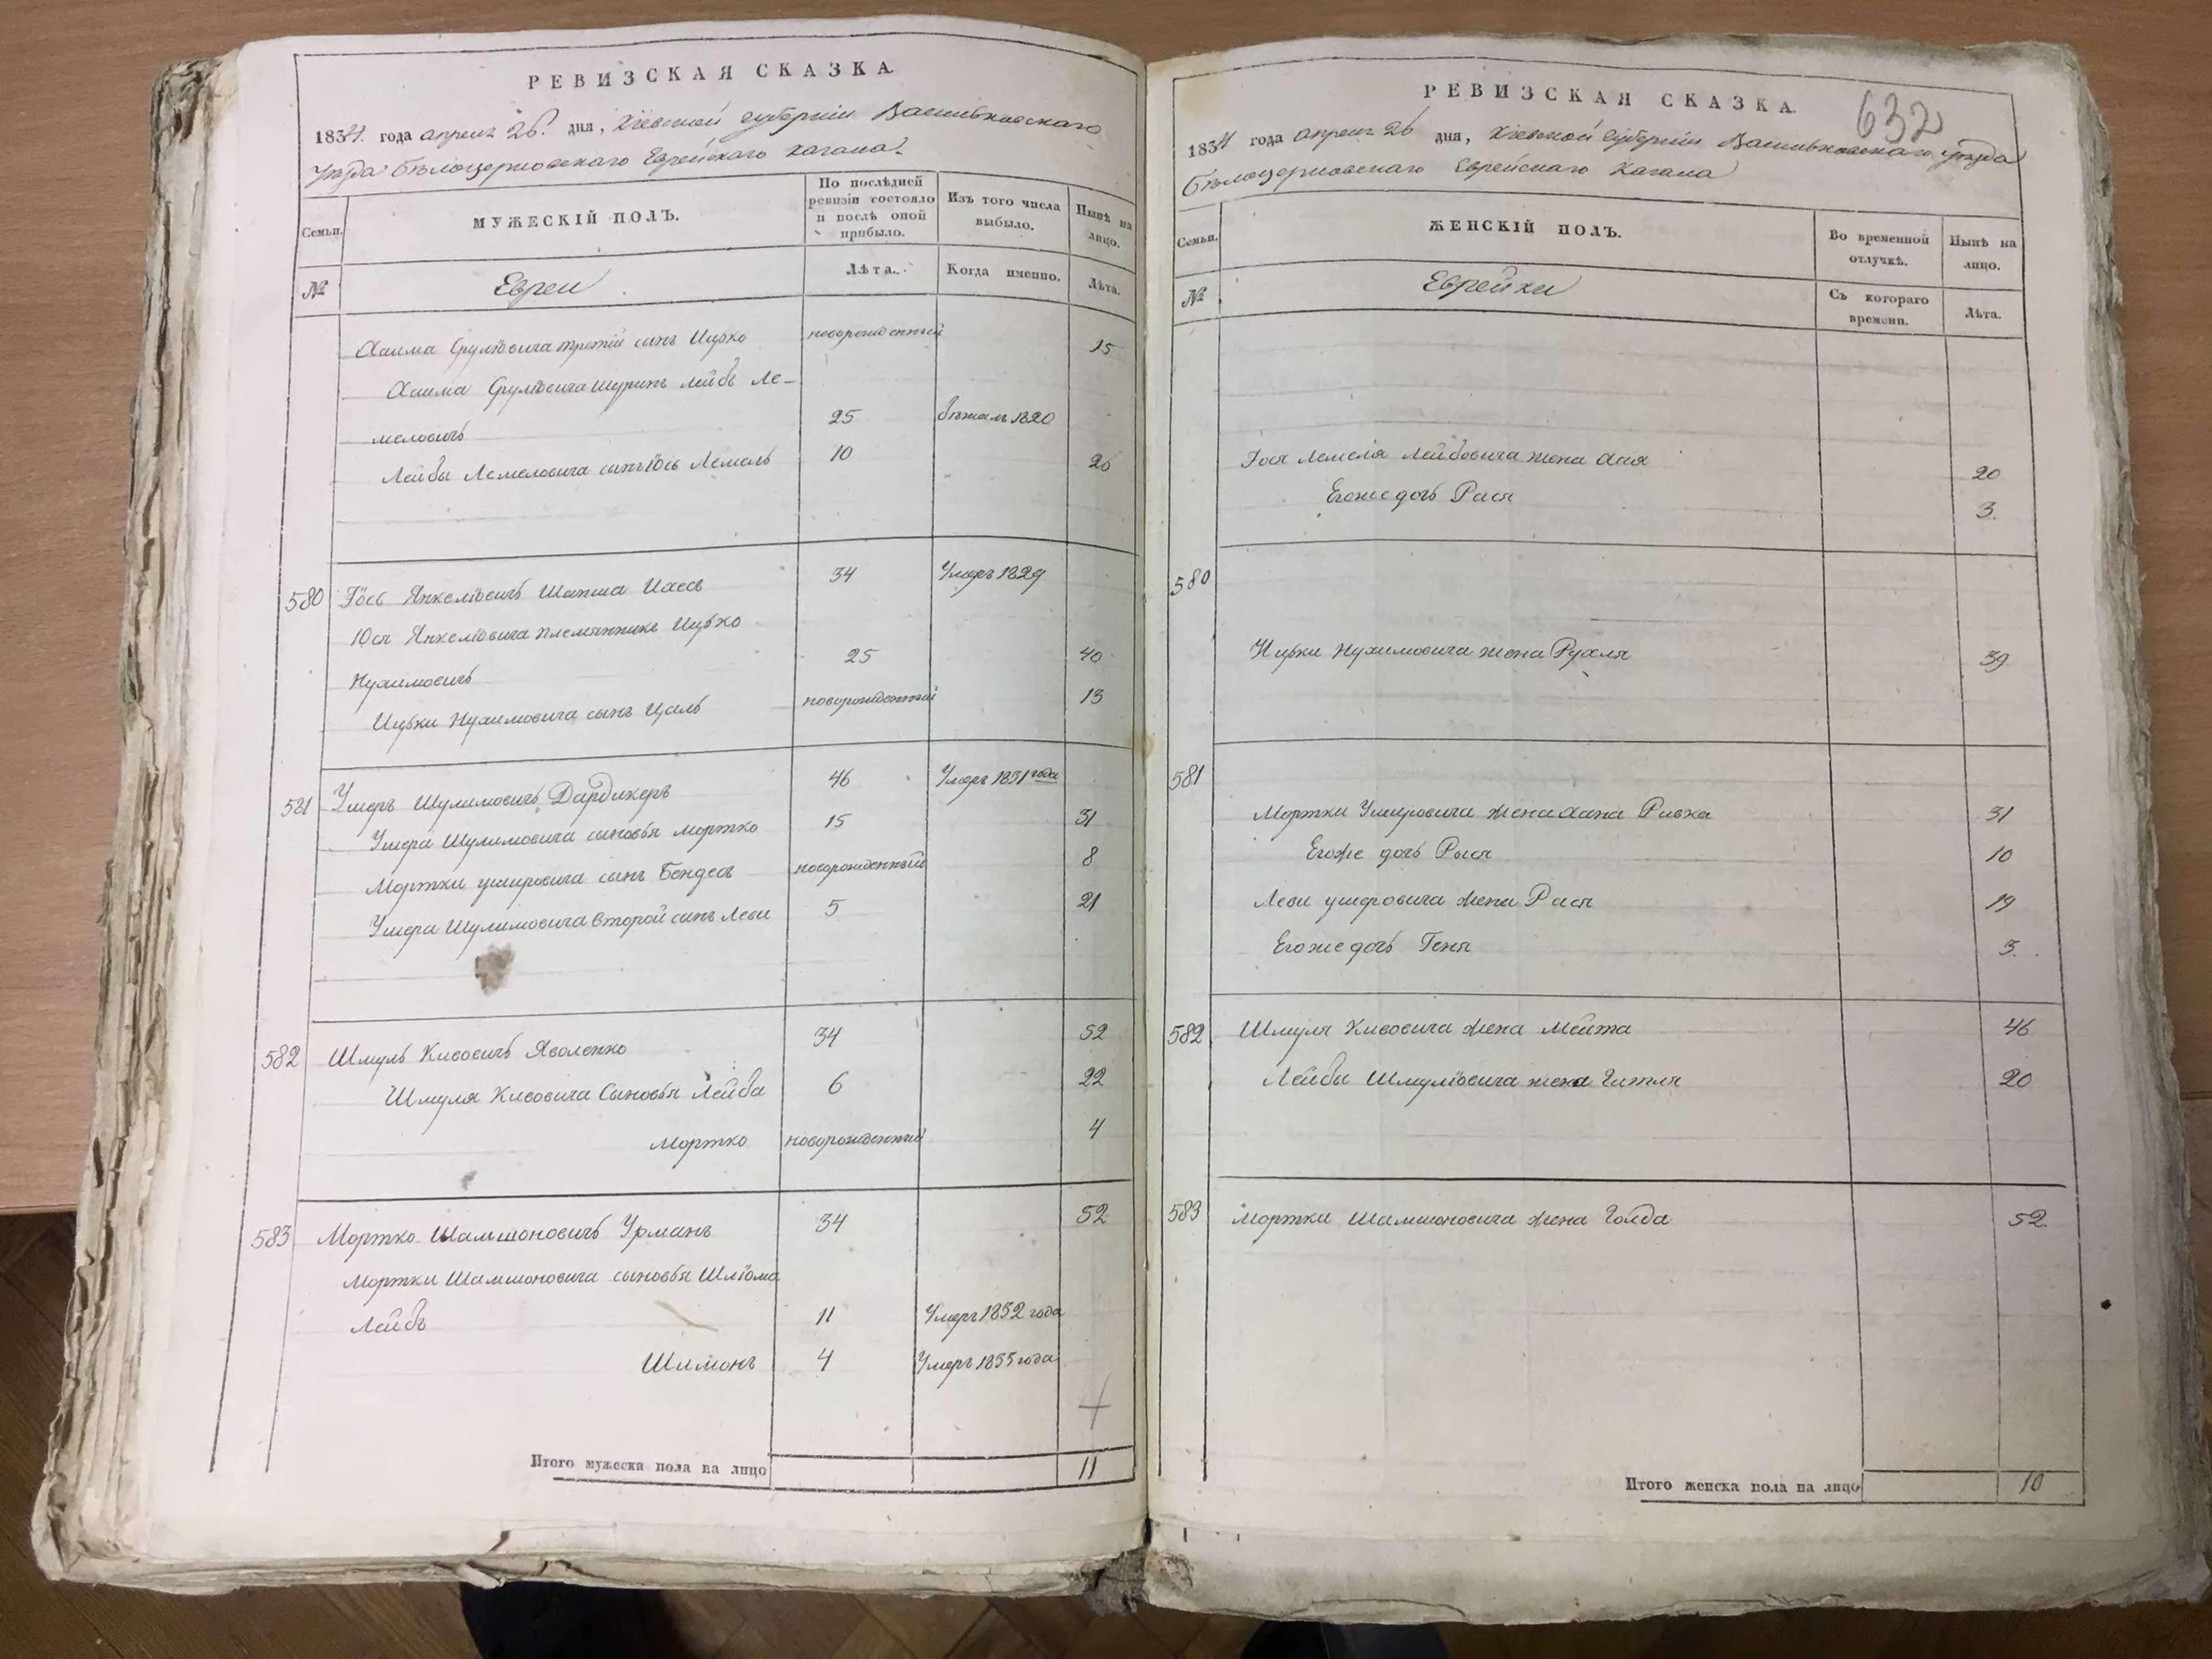 РЕВИЗСКАЯ СКАЗКА
1834 года апреля 26. дня, Кіевской губерніи Васильковскаго
уезда Бѣлоцерковскаго Еврейскаго кагала.
Семьи.
МУЖЕСКІЙ ПОЛЪ.
По послѣдней ревизіи состояло и послѣ оной прибыло.
Изъ того числа выбыло.
Нынѣ на лицо.
№
Евреи
Лѣта.
Когда именно.
Лѣта.
Хаима Сруліовича третій сынъ Ицько новорожденный 15
Хаима Сруліовича шуринъ Лейбъ Ле-
меловичъ 25 бѣжалъ 1820
Лейбы Лемеловича сынъ Іось Лемель 10 26
580 Іось Янкеліовичъ 34 Умеръ 1829
Юся Янкеліовича племянникъ Ицько
Нухимовичъ 25 40
Ицьки Нухимовича сынъ Цаль новорожденный 13
581 Ушеръ Шулимовичъ Дардикеръ 46 Умеръ 1831 года
Ушера Шулимовича сыновья Мортко 15 31
Мортки Ушеровича сынъ Бендеть новорожденный 8
Ушера Шулимовича второй сынъ Леви 5 21
582 Шмуль Кивовичъ Яволенко 34 52
Шмуля Кивовича Сыновья Лейба 6 22
Мортко новорожденный 4
583 Мортко Шамшоновичъ Урманъ 34 52
Мортки Шамшоновича сыновья Шліома
Лейбъ 11 Умеръ 1832 года
Шимонъ 4 Умеръ 1833 года
Итого мужеска пола на лицо 11
632
РЕВИЗСКАЯ СКАЗКА.
1834 года апреля 26 дня, Кіевской губерніи Васильковскаго уезда
Бѣлоцерковскаго Еврейскаго Кагала
Семьи.
ЖЕНСКІЙ ПОЛЪ.
Во временной отлучкѣ.
Нынѣ на лицо.
№
Еврейки
Съ котораго времени.
Лѣта.
Іося Лемеля Лейбовича жена Хая 20
Егоже дочь Рася 3.
580
Ицьки Нухимовича жена Рухля 39
581
Мортки Ушеровича жена Хана Ривка 31
Егоже дочь Рыся 10
Леви Ушеровича жена Рися 19
Егоже дочь Геня 3.
582 Шмуля Кивовича жена Мейта 46
Лейбы Шмуліовича жена Гитля 20
583 Мортки Шамшоновича жена Голда 52.
Итого женска пола на лицо 10